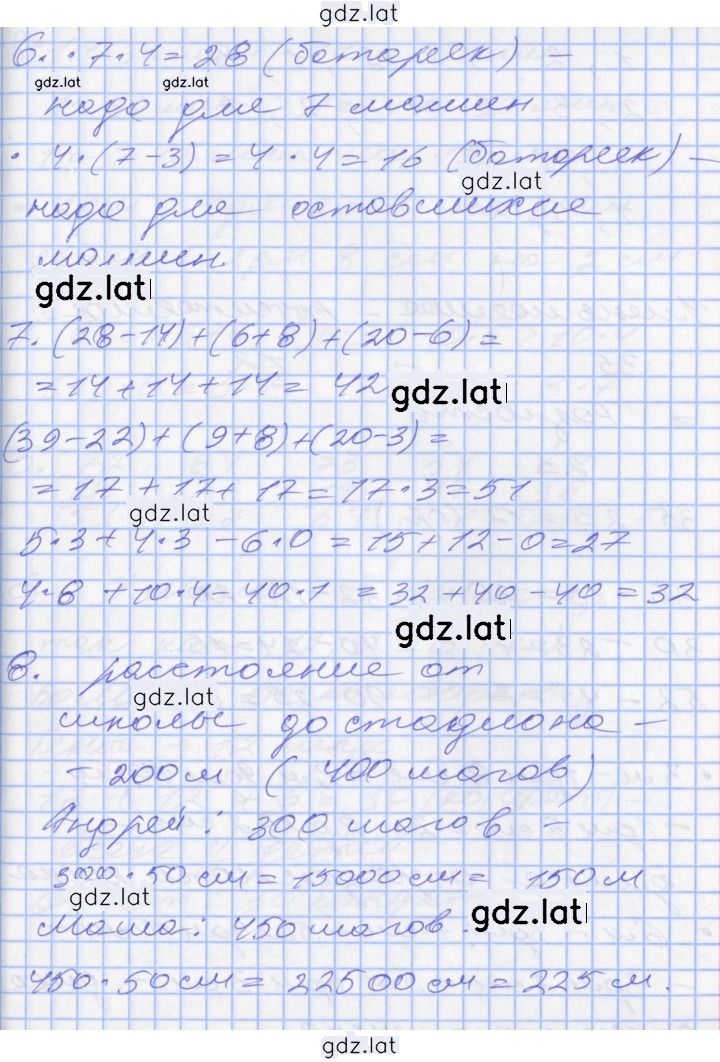 gdz.lat
6. · 7 · 4 = 28 (батареек) –
gdz.lat gdz.lat
надо для 7 машин
· 4 · (7 – 3) = 4 · 4 = 16 (батареек) –
gdz.lat
надо для оставшихся
машин.
gdz.lat
7. (28 – 14) + (6 + 8) + (20 – 6) =
= 14 + 14 + 14 = 42
gdz.lat
(39 – 22) + (9 + 8) + (20 – 3) =
= 17 + 17 + 17 = 17 · 3 = 51
gdz.lat
5 · 3 + 4 · 3 – 6 · 0 = 15 + 12 – 0 = 27
4 · 8 + 10 · 4 – 40 · 1 = 32 + 40 – 40 = 32
gdz.lat
8. расстояние от
gdz.lat
школы до стадиона –
– 200 м (400 шагов)
Андрей: 300 шагов –
300 · 50 см = 15000 см = 150 м
gdz.lat
Маша: 450 шагов.
gdz.lat
450 · 50 см = 22500 см = 225 м.
gdz.lat